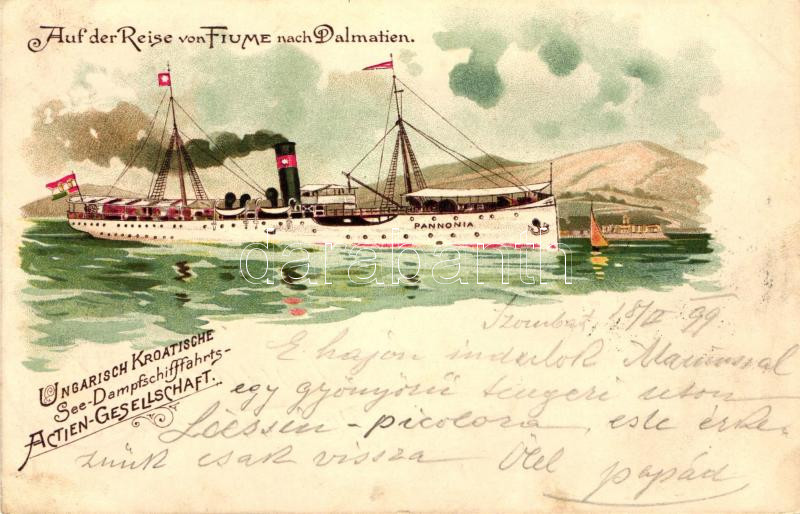 Auf der Reise von FIUME nach Dalmatien.
PANNONIA
darabanth
UNGARISCH KROATISCHE
See-Dampfschifffahrts-
ACTIEN-GESELLSCHAFT.
Szombat, 18/II 99
E hajón indulok Mamussal
egy gyönyörű tengeri uton
Lussin-picolora, este érke-
zünk csak vissza Ölel papád